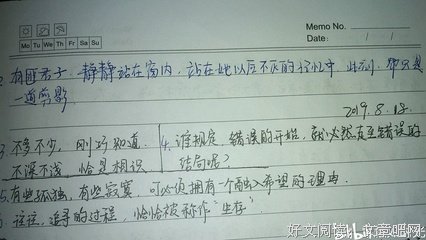 Memo No.
Mo Tu We Th Fr Sa Su
Date: / /
静静站在窗内,站在她以后不灭的记忆中,此刻,却只是
一道剪影
2019.8.18.
3.不多不少,刚巧知道.
不深不浅,恰是相识
4.谁规定,错误的开始,就必然有至错误的
结局呢?
5.有些孤独,有些寂寞,可必须拥有一个面入希望的理由.
往往,追寻的过程,恰恰被称作"生存".
好文阅读|文章吧网